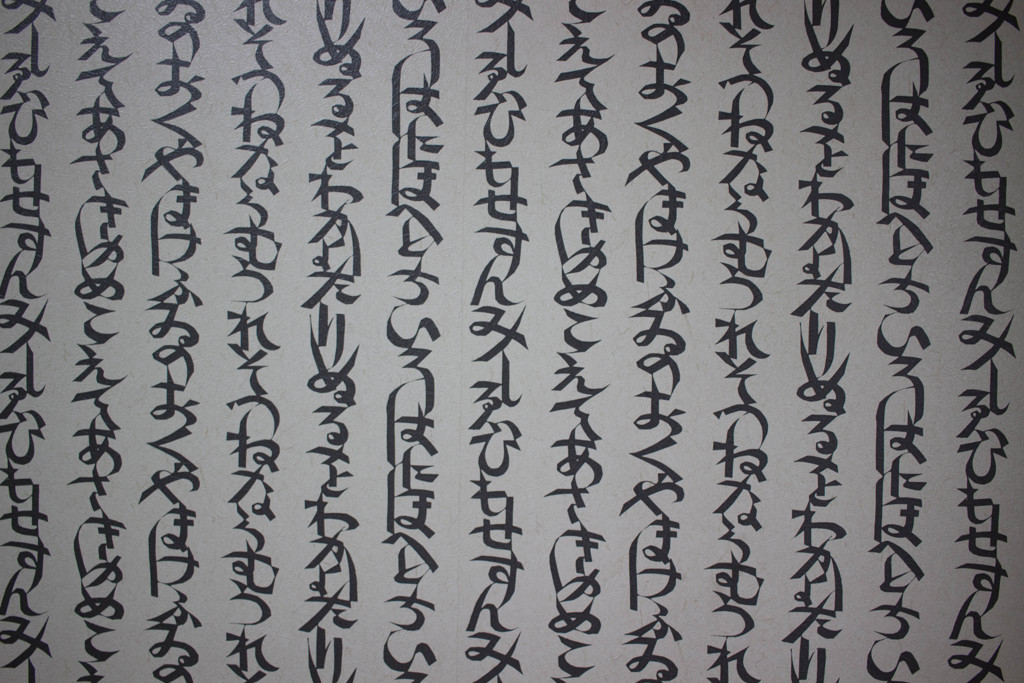 みしゑひもせすんみしゑひもせすんみ
いろはにほへとちいろはにほへとちい
りぬるをわかよたりぬるをわかよたり
れそつねならむうれそつねならむうれ
ゐのおくやまけふゐのおくやまけふゐの
こえてあさきゆめこえてあさきゆめこ
みしゑひもせすんみしゑひもせすんみ
いろはにほへとちいろはにほへとちい
りぬるをわかよたりぬるをわかよたり
れそつねならむうれそつねならむうれ
ゐのおくやまけふゐのおくやまけふゐの
こえてあさきゆめこえてあさきゆめこえ
みしゑひもせすんみしゑひもせすんみし